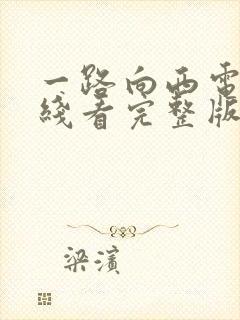 一路向西电
线看完整版
梁濱